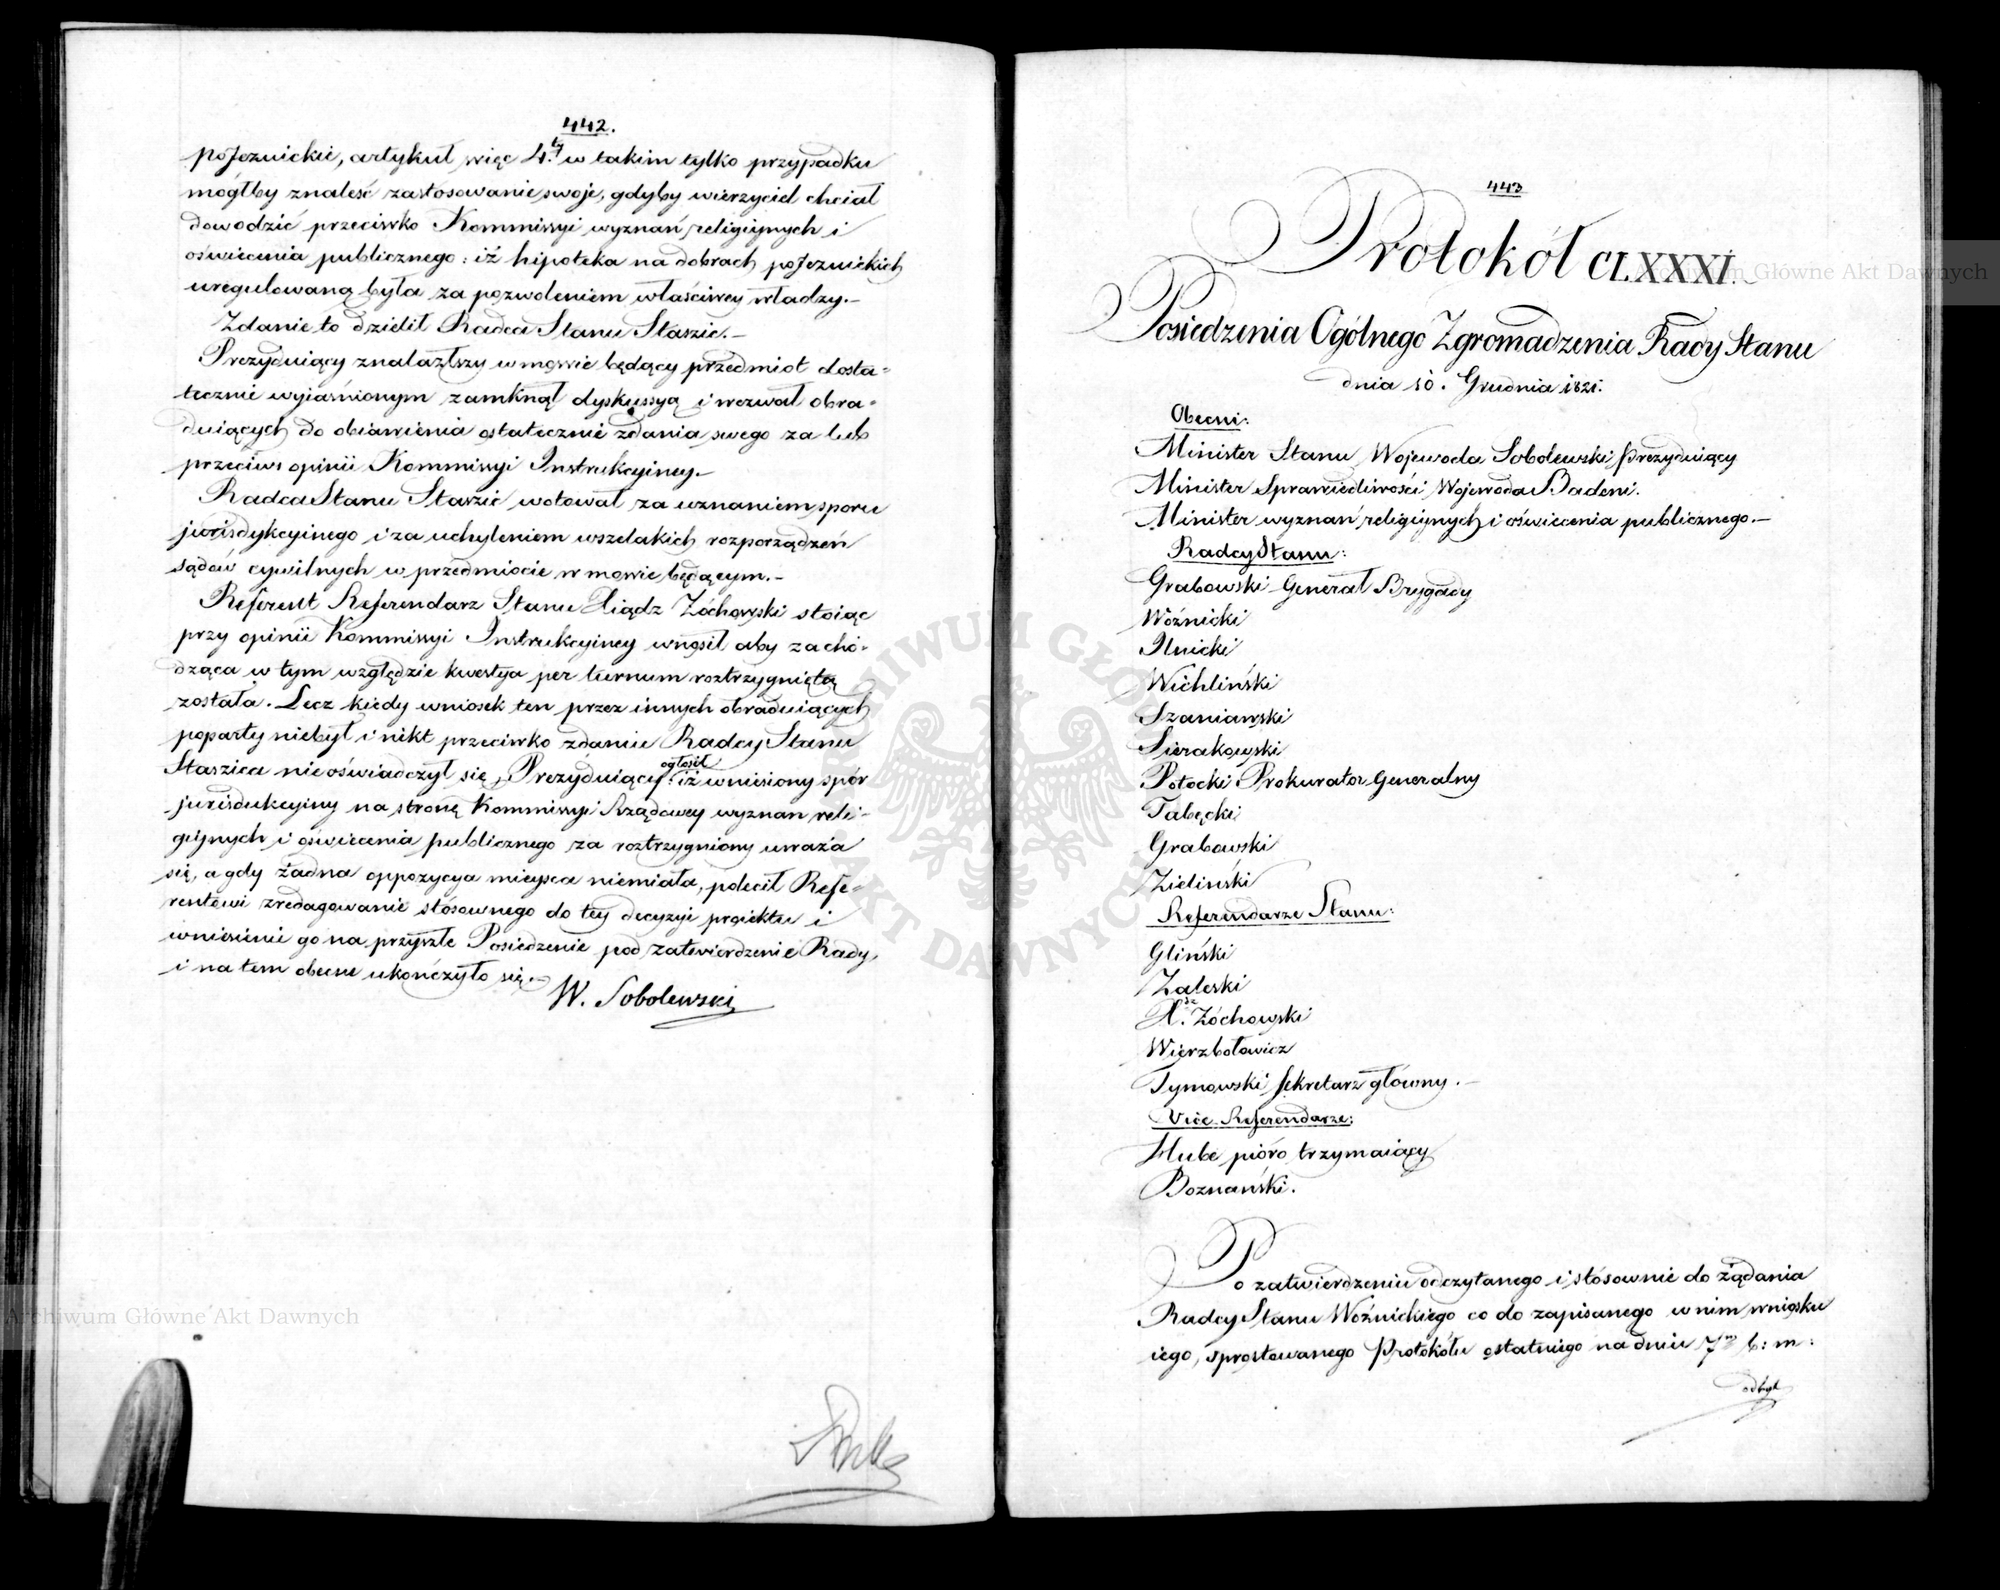 442.
poJezuickie, artykuł więc 4.ty w takim tylko przypadku
mógłby znaleść zastosowanie swoje, gdyby wierzyciel chciał
dowodzić przeciwko Kommissyi wyznań religiynych i
oświecenia publicznego: iż hipoteka na dobrach poJezuickich
uregulowaną była za pozwoleniem właściwey władzy.—
Zdanie to dzielił Radca Stanu Staszic.—
Prezyduiący znalazłszy w mowie będący przedmiot dosta-
tecznie wyiaśnionym zamknął dyskussyą i wezwał obra-
duiących do obiawienia ostatecznie zdania swego za lub
przeciw opinii Kommissyi Instrukcyiney.—
Radca Stanu Staszic wotował za uznaniem sporu
jurisdykcyinego i za uchyleniem wszelakich rozporządzeń
sądów cywilnych w przedmiocie w mowie będącym.—
Referent Referendarz Stanu Xiądz Zóchowski stoiąc
przy opinii Kommissyi Instrukcyiney wnosił aby zacho-
dząca w tym względzie kwestya per turnum roztrzygniętą
została. Lecz kiedy wniosek ten przez innych obraduiących
poparty niebył i nikt przeciwko zdaniu Radcy Stanu
Staszica nie oświadczył się, Prezyduiący ogłosił: iż wniesiony spór
jurisdukcyiny na stronę Kommissyi Rządowey wyznan reli-
giynych i oświecenia publicznego za roztrzygniony uważa
się, a gdy żadna oppozycya mieysca niemiała, polecił Refe-
rentowi zredagowanie stósownego do tey decyzyi proiektu i
wniesienie go na przyszłe Posiedzenie pod zatwierdzenie Rady,
i na tem obecne ukończyło się.—
W. Sobolewski
443
Protokół CLXXXI.
Posiedzenia Ogólnego Zgromadzenia Rady Stanu
dnia 10. Grudnia 1821.
Obecni:
Minister Stanu Wojewoda Sobolewski Prezyduiący
Minister Sprawiedliwości Wojewoda Badeni.
Minister wyznań religiynych i oświecenia publicznego.—
Radcy Stanu:
Grabowski Generał Brygady
Woźnicki
Ilnicki
Wichliński
Szaniawski
Sierakowski
Potocki Prokurator Generalny
Tabęcki
Grabowski
Zieliński
Referendarze Stanu:
Gliński
Zaleski
X.dz Zóchowski
Wierzbołowicz
Tymowski Sekretarz główny.—
Vice Referendarze:
Hube pióro trzymaiący
Boznański.
Po zatwierdzeniu odczytanego i stósownie do żądania
Radcy Stanu Woźnickiego co do zapisanego w nim wniosku
iego, sprostowanego Protokółu ostatniego na dniu 7m b: m:
odbyt
Archiwum Główne Akt Dawnych
Archiwum Główne Akt Dawnych
ARCHIWUM GŁÓWNE AKT DAWNYCH